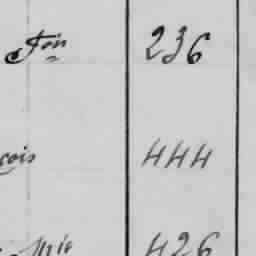 Fois 236
çois 444
Mie 426